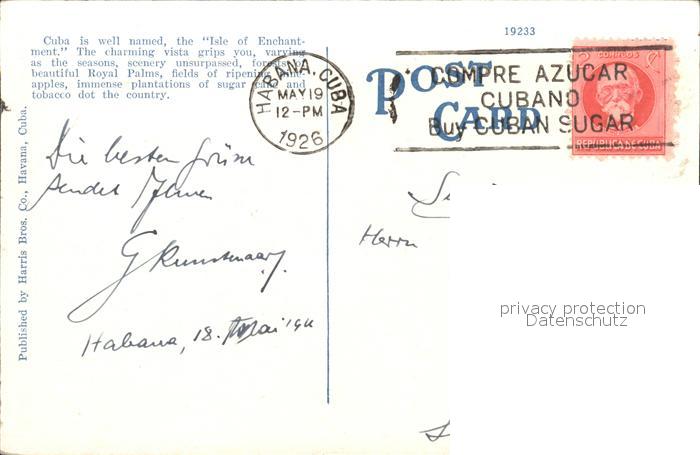 Cuba is well named, the "Isle of Enchant-
ment." The charming vista grips you, varying
as the seasons, scenery unsurpassed, forests
beautiful Royal Palms, fields of ripening pine-
apples, immense plantations of sugar cane and
tobacco dot the country.
Published by Harris Bros. Co., Havana, Cuba.
HABANA, CUBA
MAY 19
12-PM
1926
19233
POST
CARD
COMPRE AZUCAR
CUBANO
Buy CUBAN SUGAR
2 CORREOS ¢
REPUBLICA DE CUBA
Die besten Grüsse
sendet Ihnen
Habana, 18. Mai
Herrn
privacy protection
Datenschutz